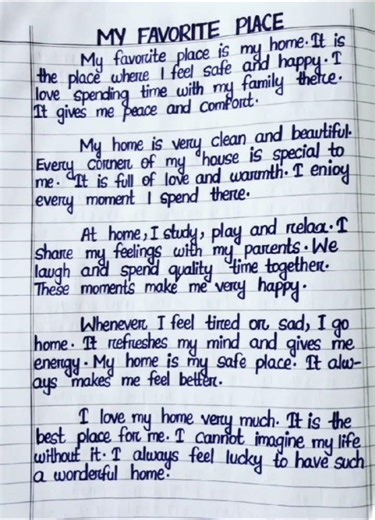 MY FAVORITE PLACE
My favorite place is my home. It is
the place where I feel safe and happy. I
love spending time with my family there.
It gives me peace and comfort.
My home is very clean and beautiful.
Every corner of my house is special to
me. It is full of love and warmth. I enjoy
every moment I spend there.
At home, I study, play and relax. I
share my feelings with my parents. We
laugh and spend quality time together.
These moments make me very happy.
Whenever I feel tired or sad, I go
home. It refreshes my mind and gives me
energy. My home is my safe place. It alw-
ays makes me feel better.
I love my home very much. It is the
best place for me. I cannot imagine my life
without it. I always feel lucky to have such
a wonderful home.